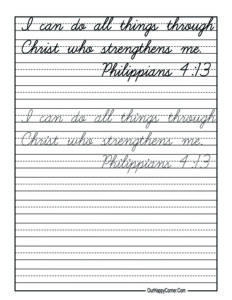 I can do all things through
Christ who strengthens me.
Philippians 4:13
I can do all things through
Christ who strengthens me.
Philippians 4:13
OurHappyCorner.Com